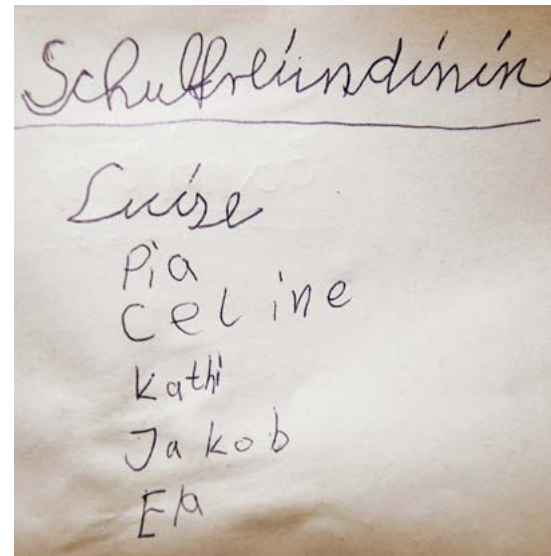 Schulfreundinin
Luise
Pia
Celine
Kathi
Jakob
Ela